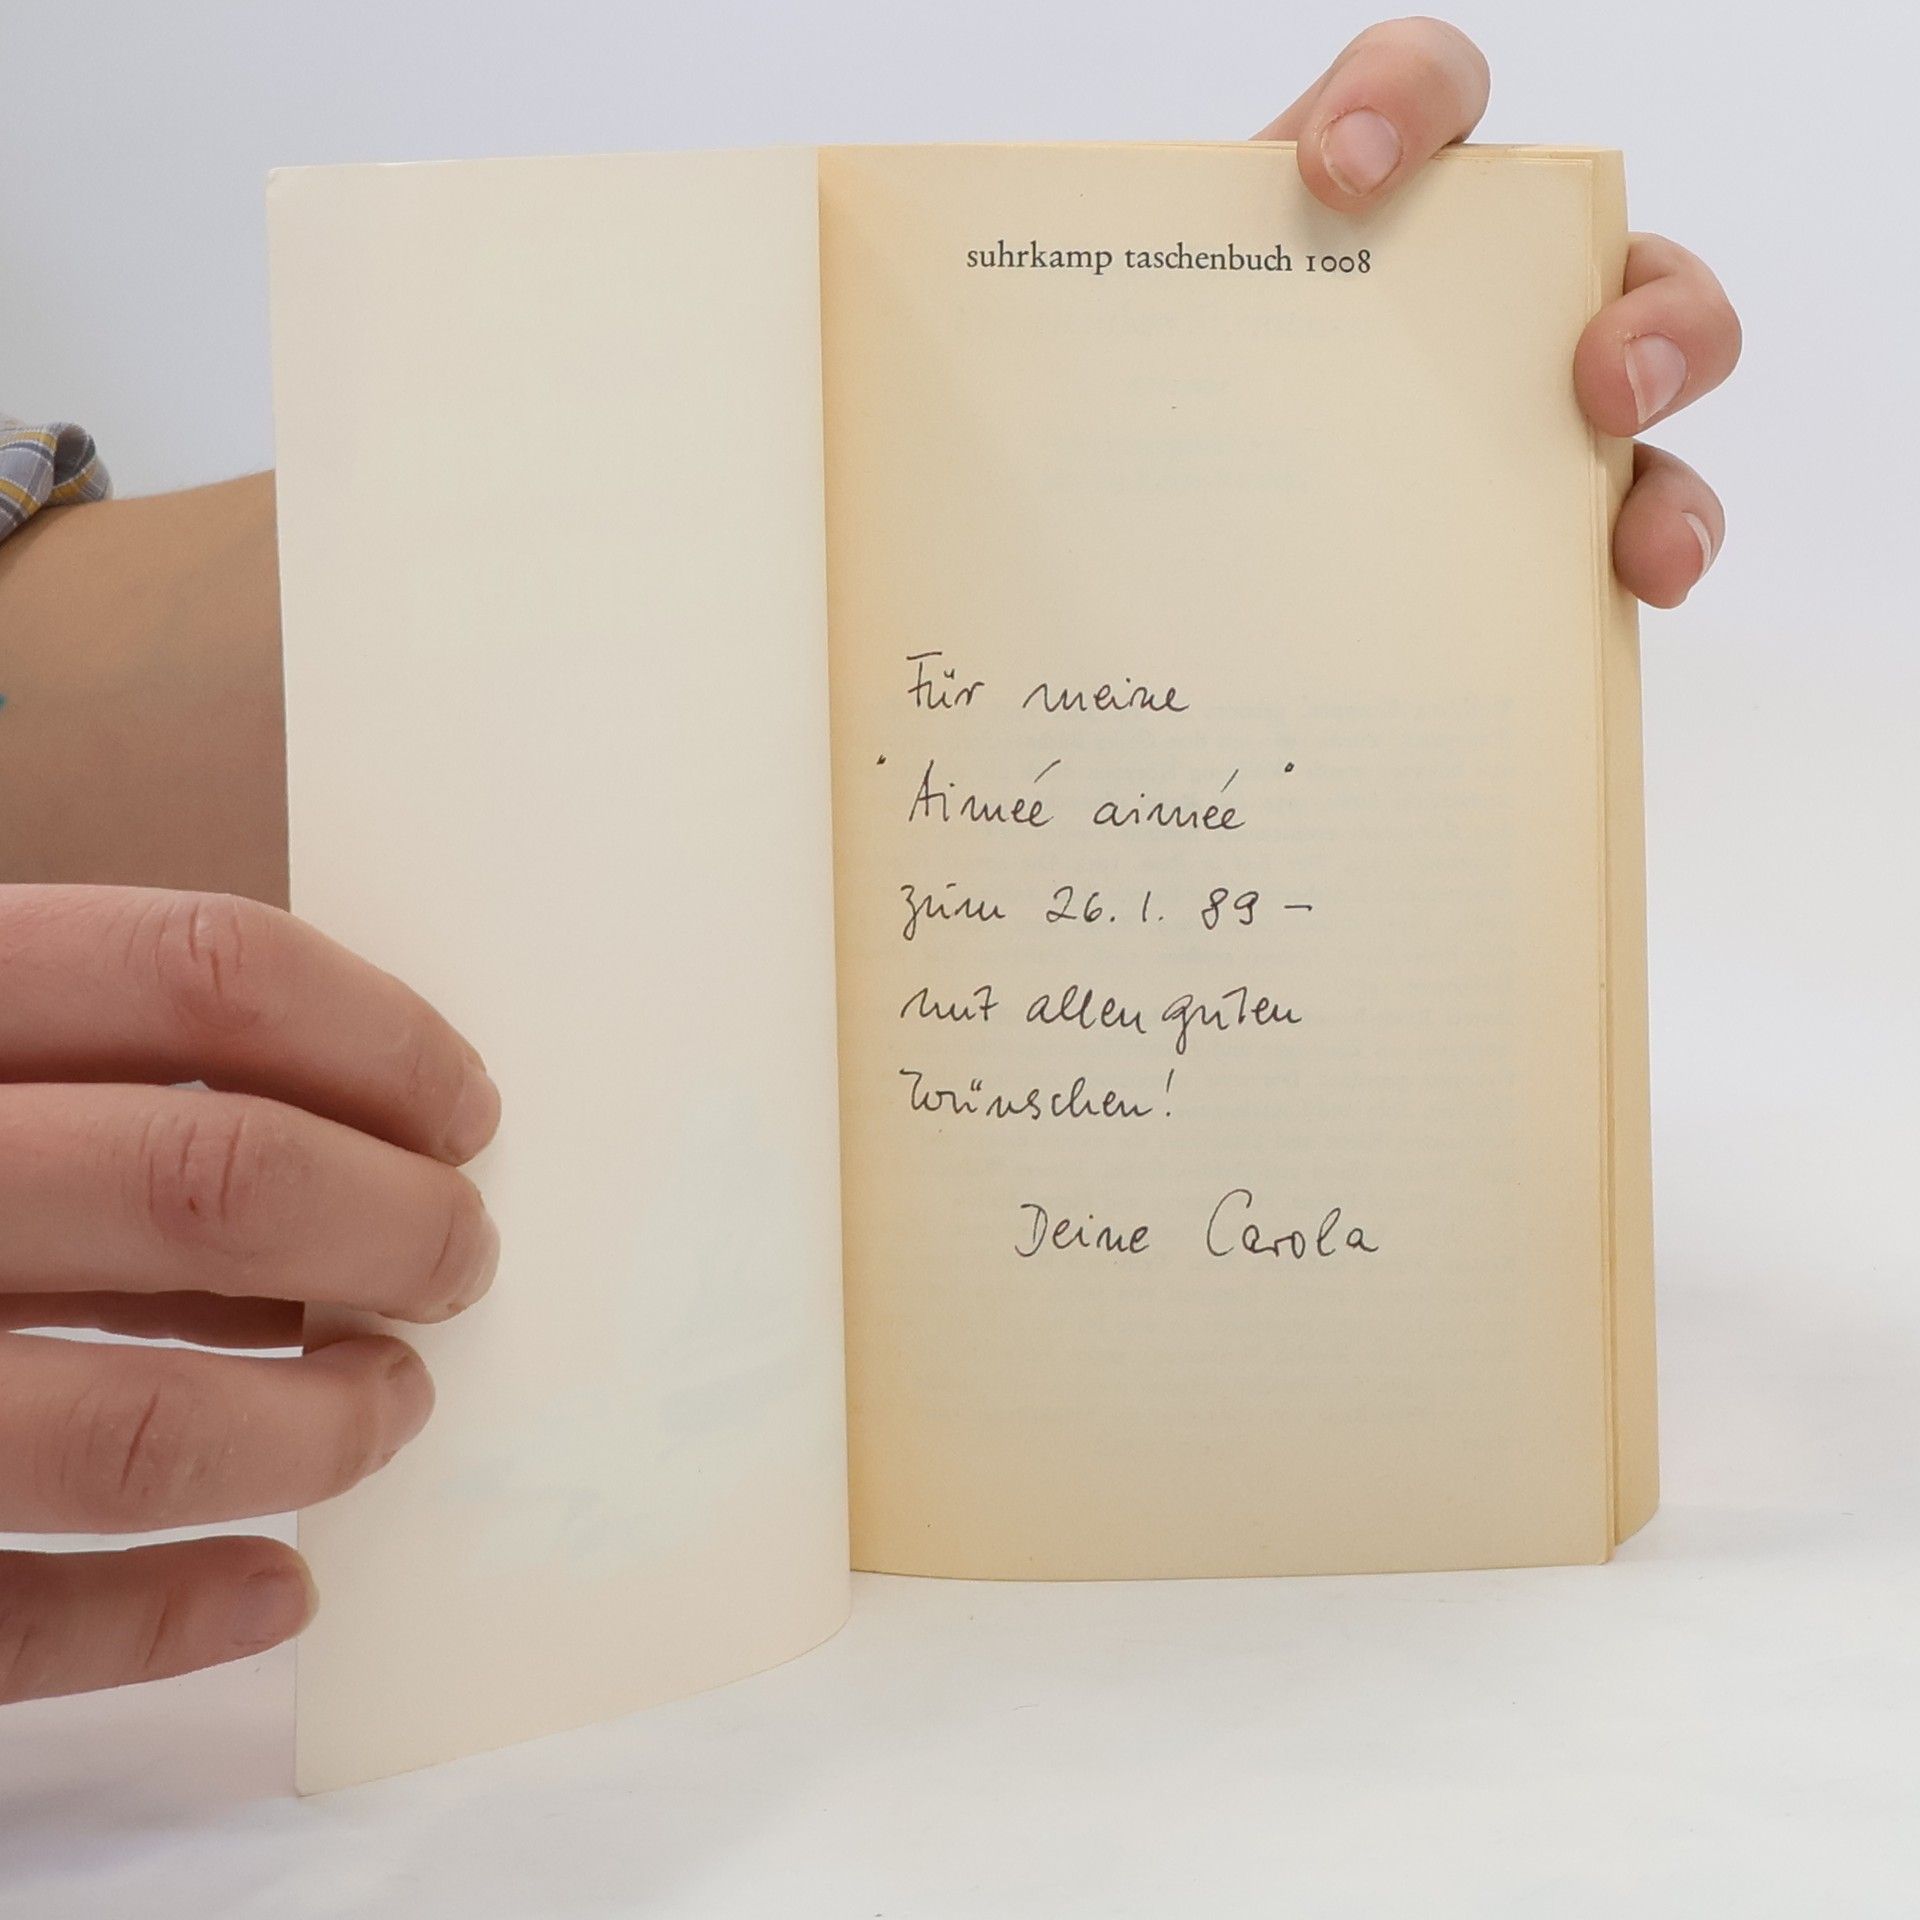 suhrkamp taschenbuch 1008
Für meine
"Aimée aimée"
zum 26. 1. 89 –
mit allen guten
Wünschen!
Deine Carola